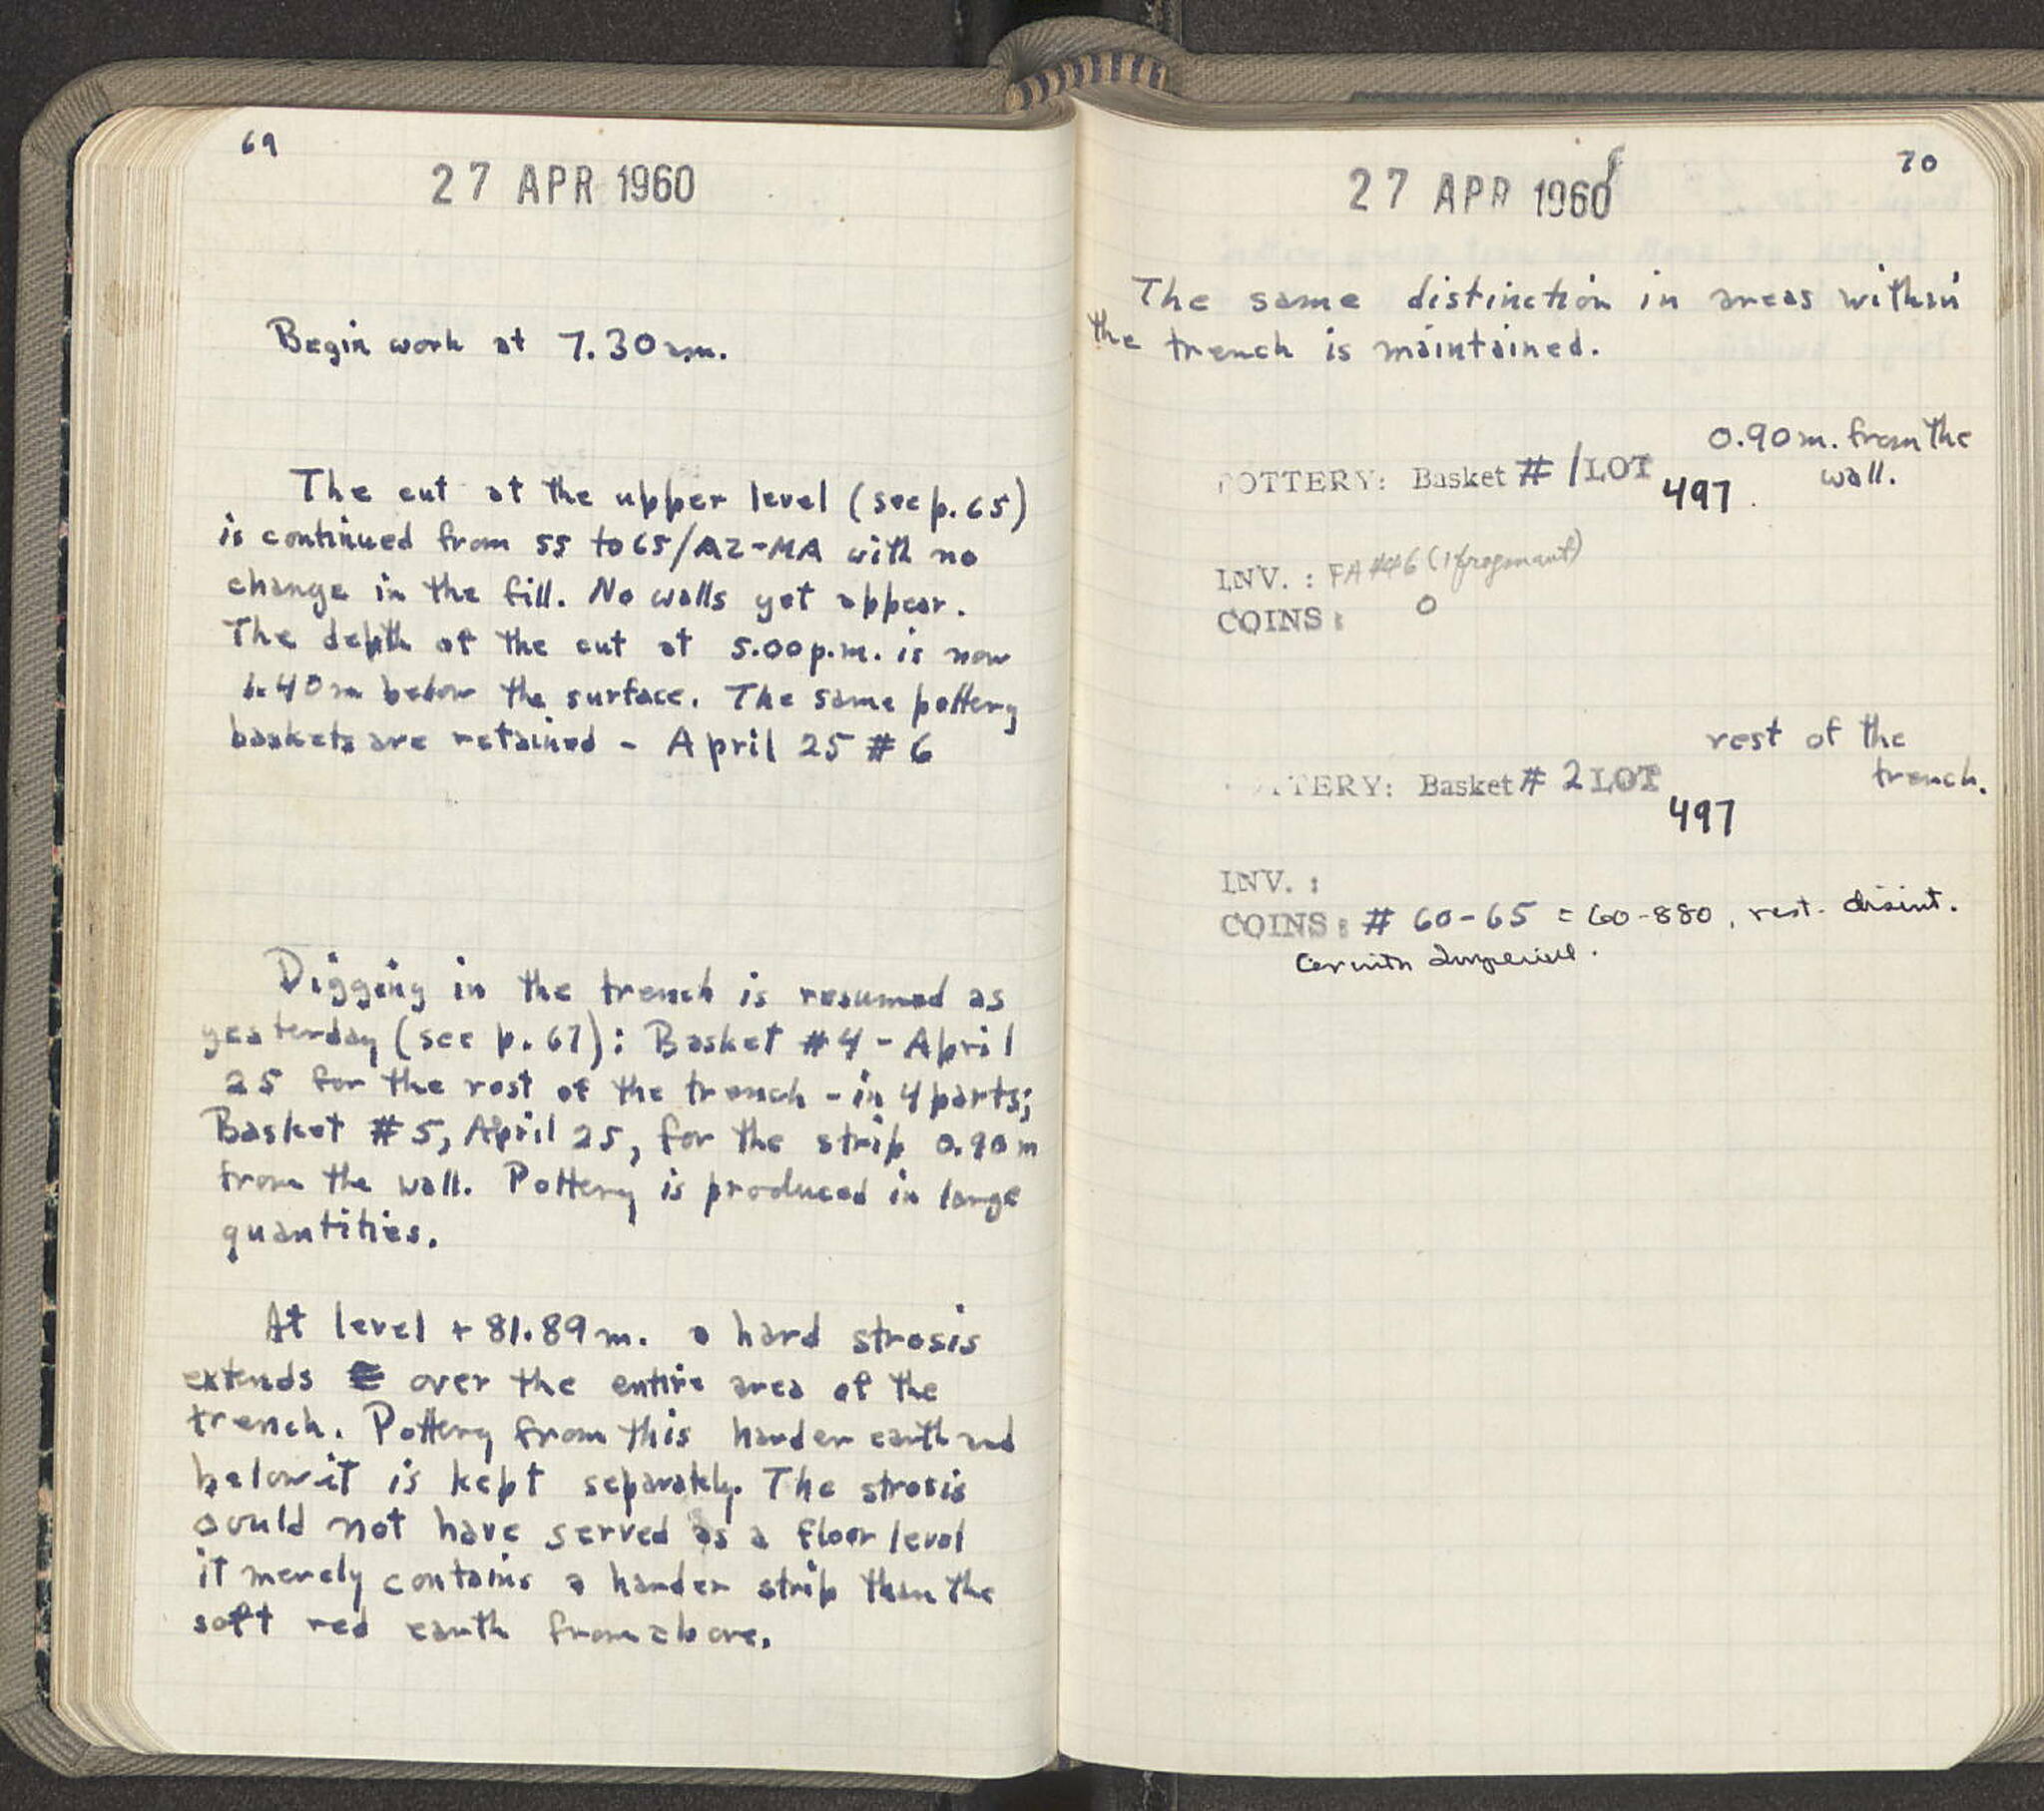 69
27 APR 1960
Begin work at 7.30 am.
The cut at the upper level (see p. 65)
is continued from 55 to 65/AZ-MA with no
change in the fill. No walls yet appear.
The depth of the cut at 5.00 p.m. is now
1.40m below the surface. The same pottery
baskets are retained - April 25 # 6
Digging in the trench is resumed as
yesterday (see p. 67): Basket #4 - April
25 for the rest of the trench - in 4 parts;
Basket #5, April 25, for the strip 0.90 m
from the wall. Pottery is produced in large
quantities.
At level + 81.89 m. a hard strosis
extends over the entire area of the
trench. Pottery from this harder earth and
below it is kept separately. The strosis
could not have served as a floor level
it merely contains a harder strip than the
soft red earth from above.
70
27 APR 1960
The same distinction in areas within
the trench is maintained.
0.90 m. from the
wall.
POTTERY: Basket # 1 LOT 497
INV. : FA 446 (1 fragment)
COINS: 0
rest of the
trench.
POTTERY: Basket # 2 LOT
497
INV. :
COINS: # 60-65 = 60-880, rest disint.
Corinth Imperial.